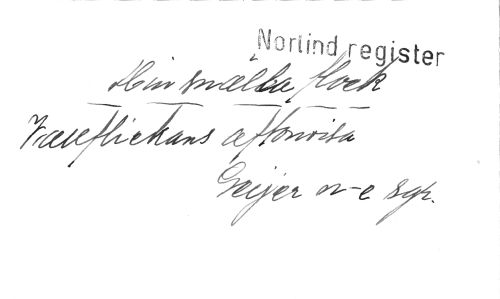 Nortind register
Min snälla flock
Vallflickans aftonvisa
Geijer n-e sgr.